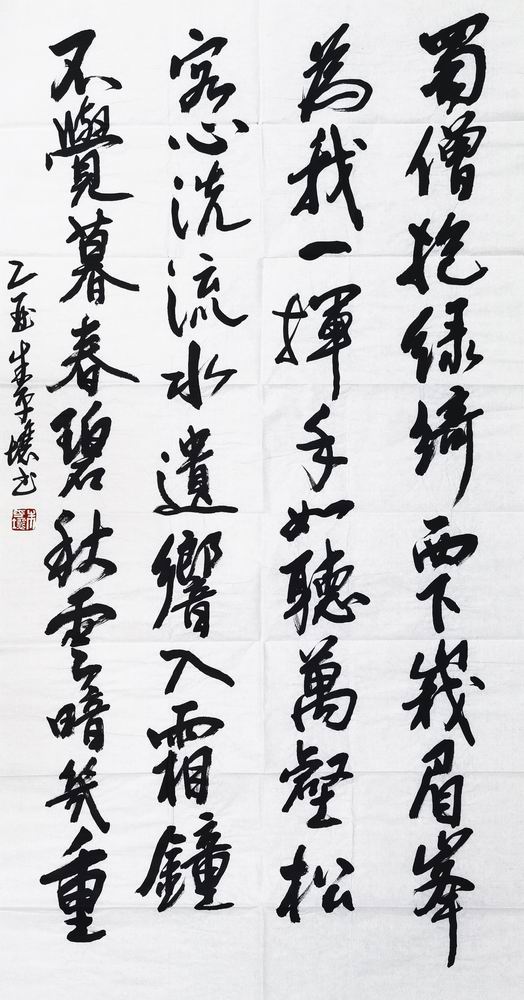 蜀僧抱緑綺西下峨眉峯
為我一揮手如聽萬壑松
客心洗流水遺響入霜鐘
不覺暮春碧秋雲暗幾重
朱書